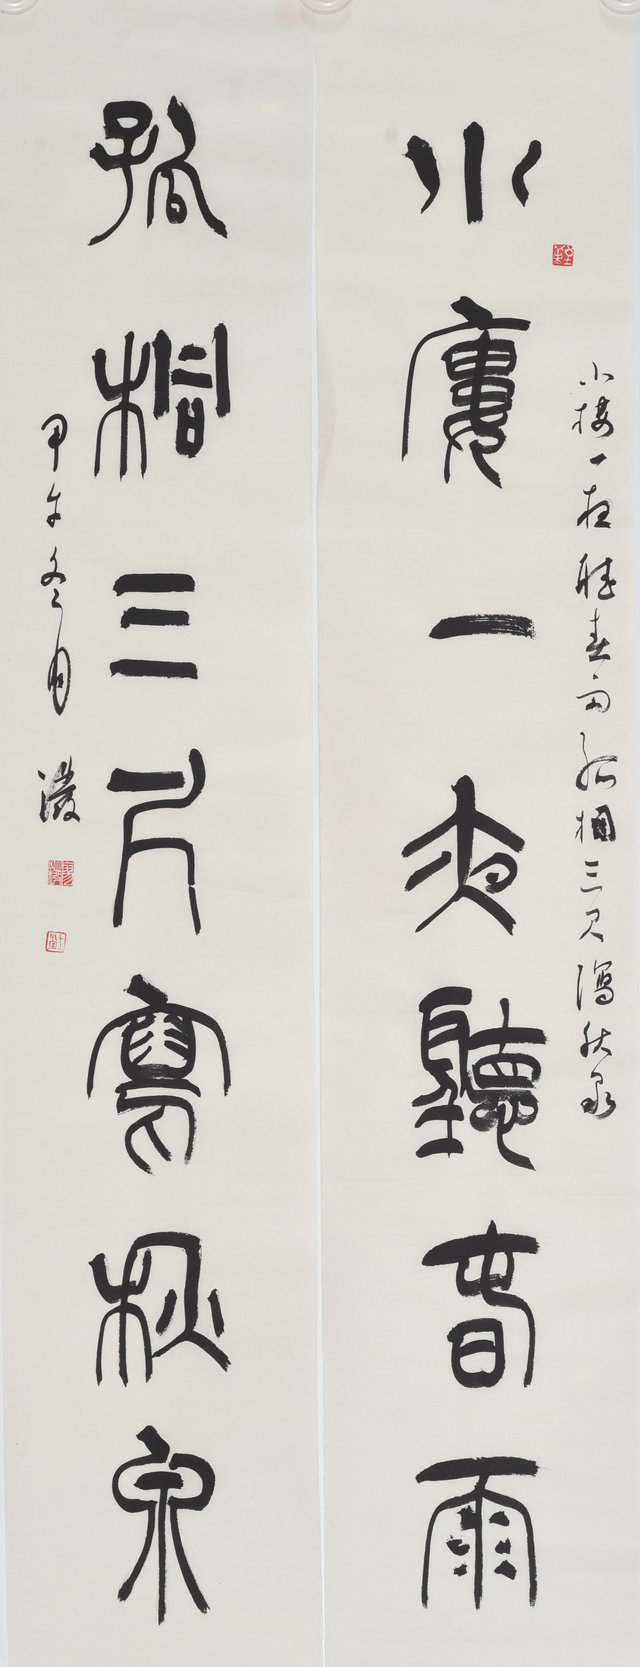 小樓一夜聽春雨孤桐三尺瀉秋泉
小廔一夜聽春雨
孤桐三尺寫秋泉
甲午冬月